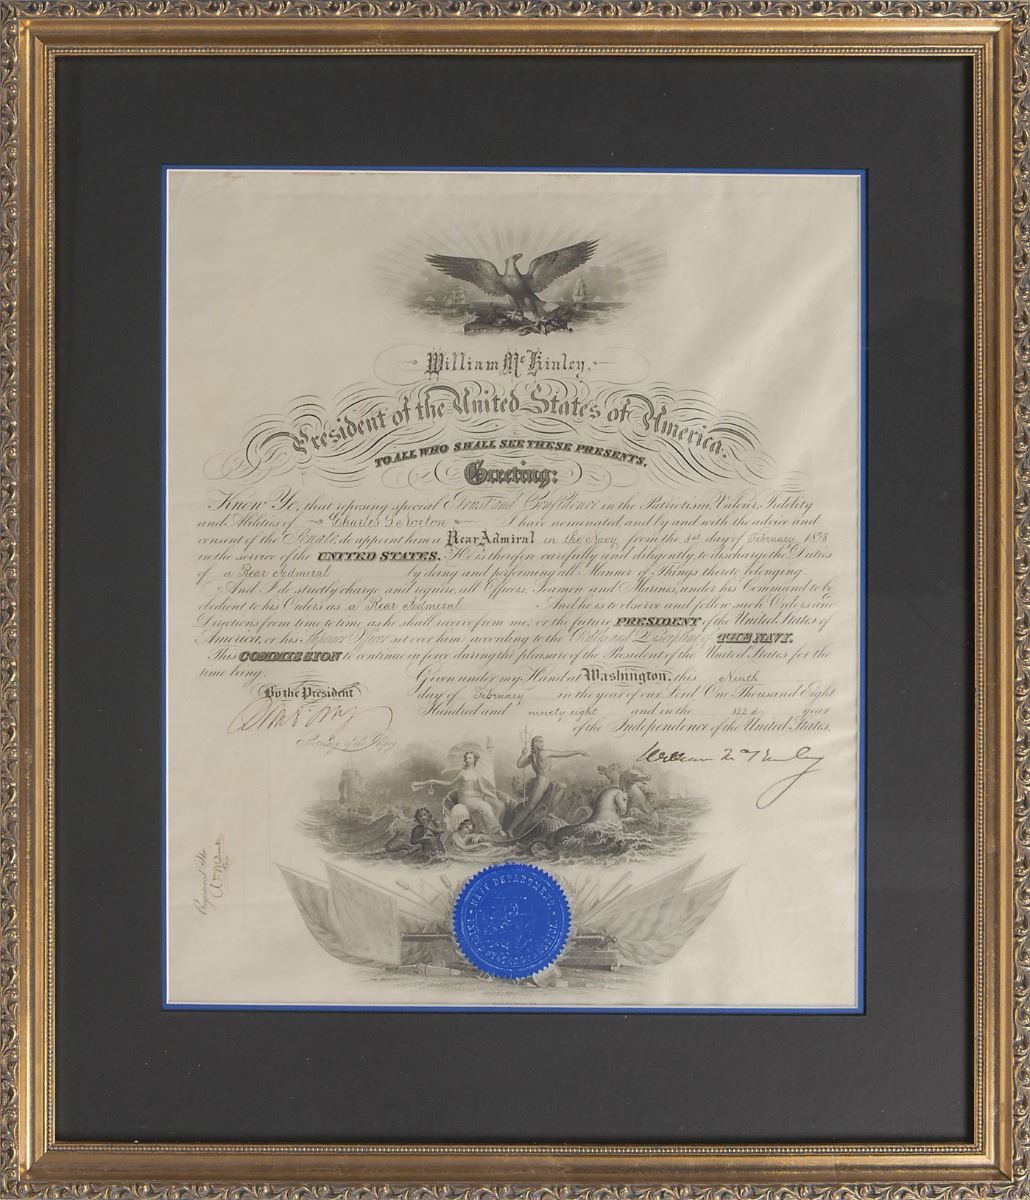 William McKinley.
President of the United States of America.
TO ALL WHO SHALL SEE THESE PRESENTS,
Greeting:
Know Ye, that reposing special Trust and Confidence in the Patriotism, Valour, Fidelity
and Abilities of Charles S. Norton I have nominated and by and with the advice and
consent of the Senate, do appoint him a Rear Admiral in the Navy from the 1st day of February 1898
in the service of the UNITED STATES. He is therefore carefully and diligently, to discharge the Duties
of a Rear Admiral by doing and performing all Manner of Things thereto belonging.
And I do strictly charge and require, all Officers, Seamen and Marines, under his Command to be
obedient to his Orders as a Rear Admiral And he is to observe and follow such Orders and
Directions from time to time as he shall receive from me, or the future PRESIDENT of the United States of
America, or his Superior Officer set over him, according to the Rules and Discipline of THE NAVY.
This COMMISSION to continue in force during the pleasure of the President of the United States for the
time being.
Given under my Hand at Washington, this Ninth
By the President
day of February in the year of our Lord One Thousand Eight
Hundred and ninety eight and in the 122d year
of the Independence of the United States.
John D. Long
Secretary of the Navy
William McKinley
Registered No.
NAVY DEPARTMENT
UNITED STATES OF AMERICA